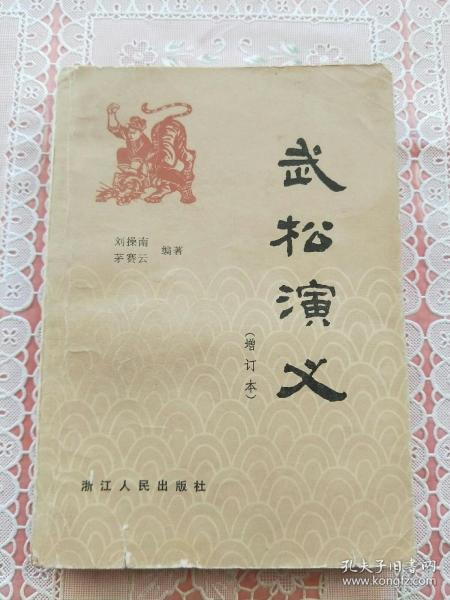 武松演义
(增订本)
刘操南
茅赛云
编著
浙江人民出版社
孔夫子旧书网
www.kongfz.com